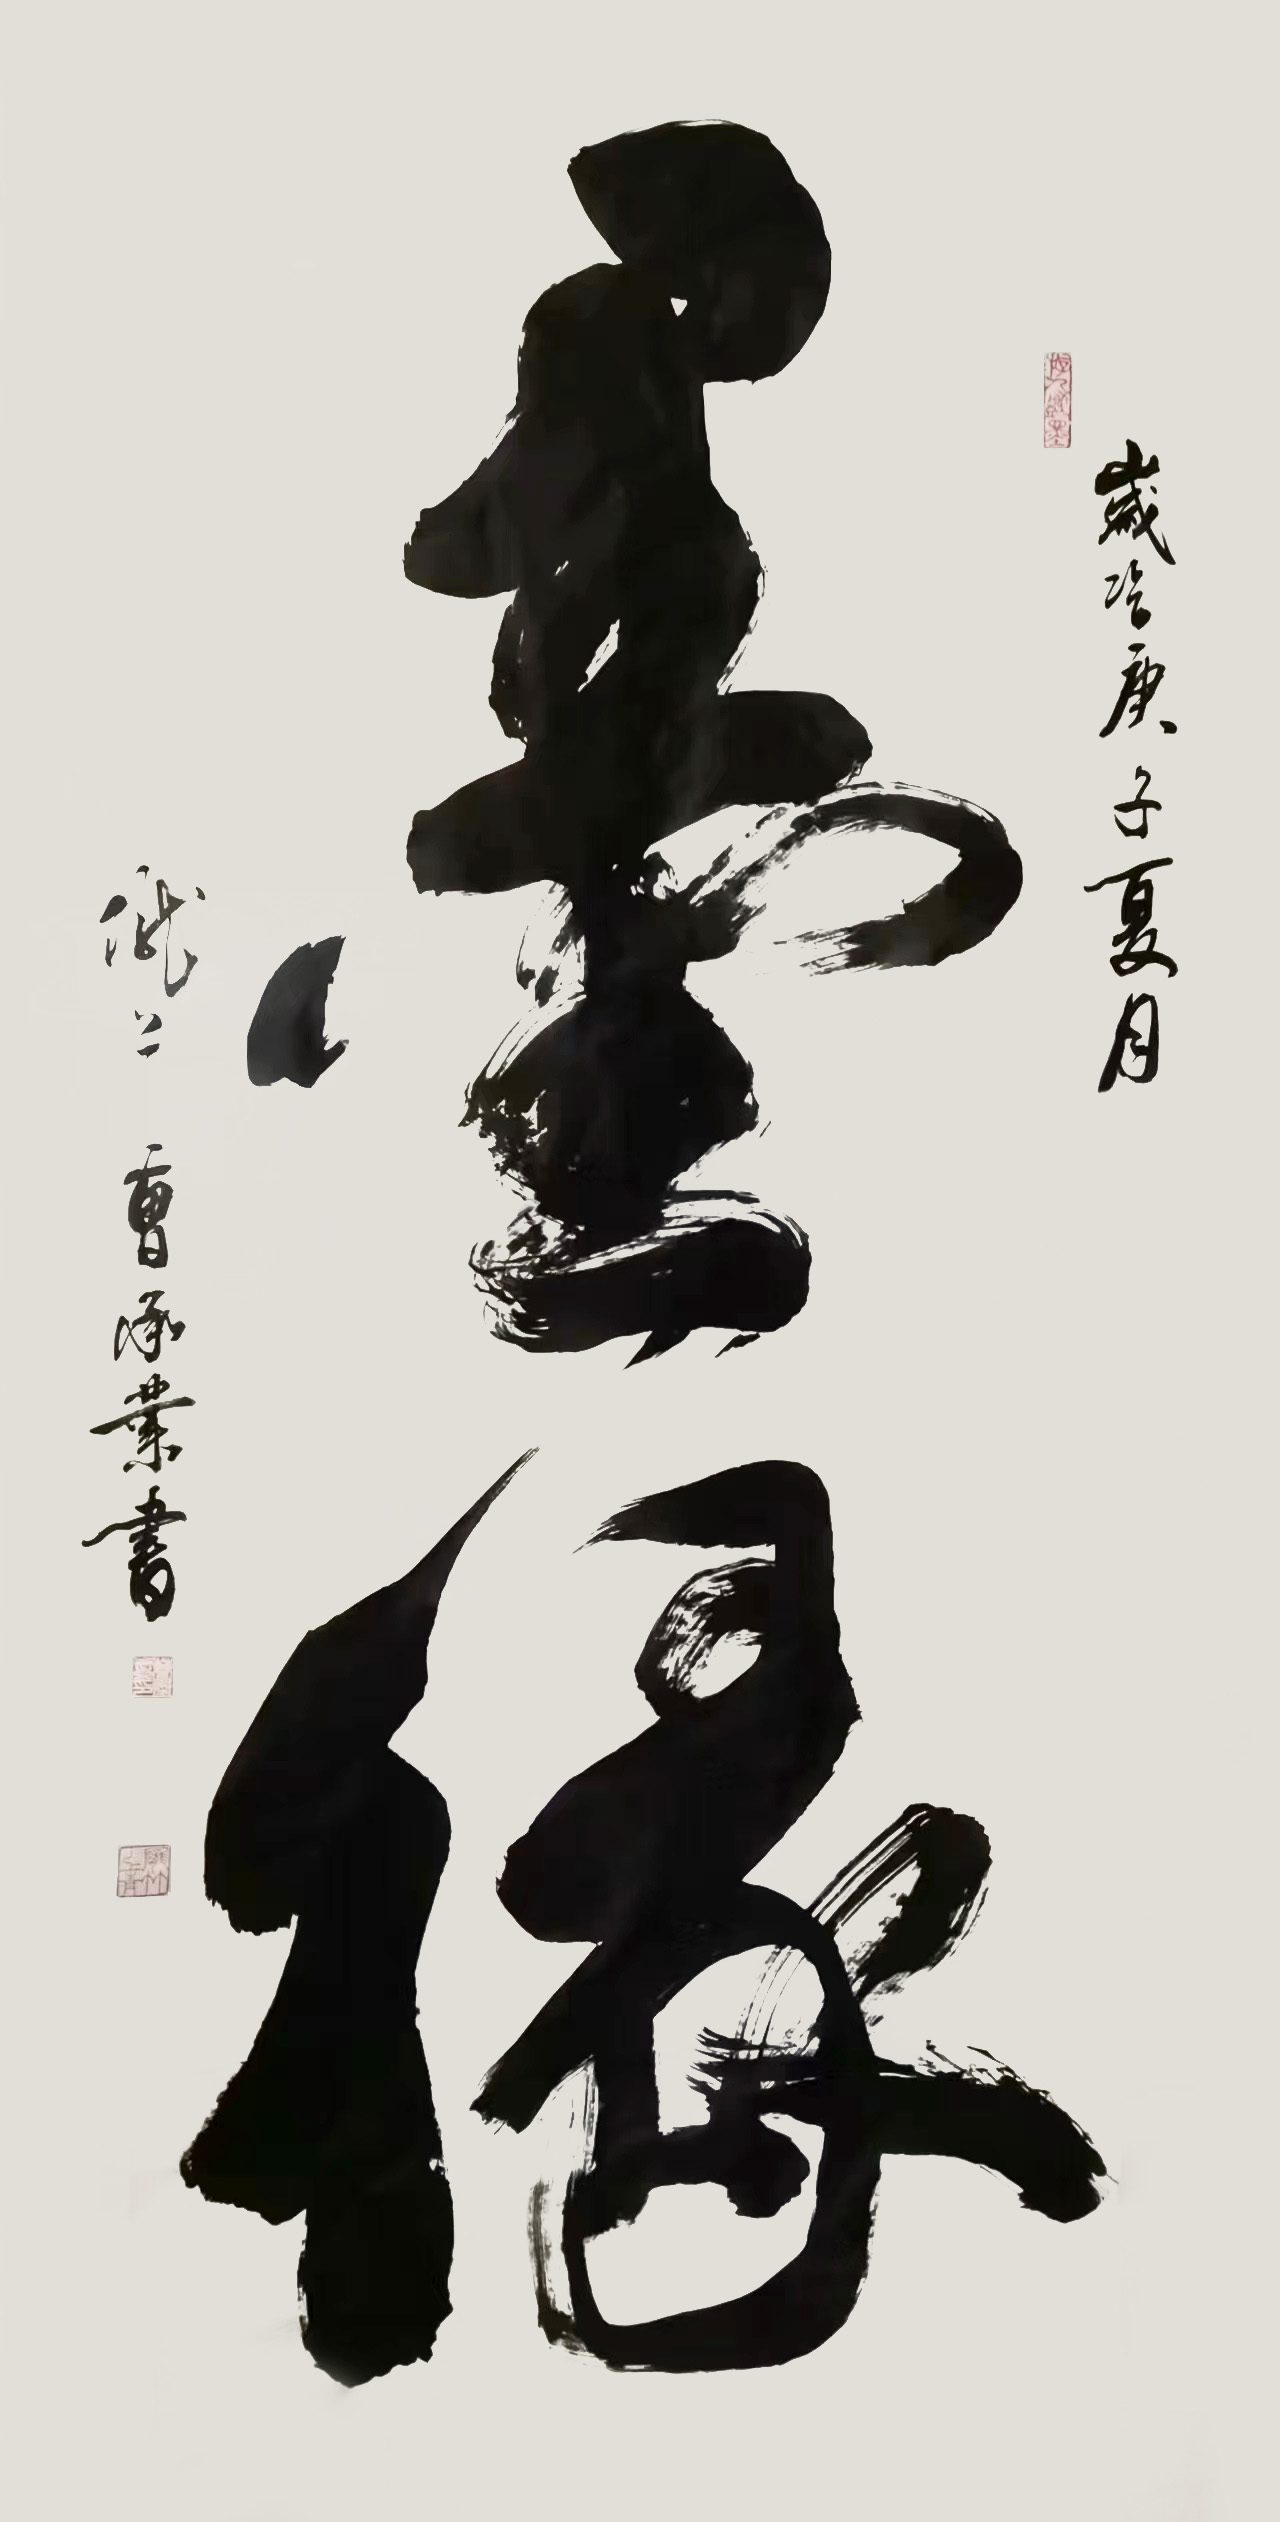 歲次庚子夏月
墨緣
隴上 曹承業書